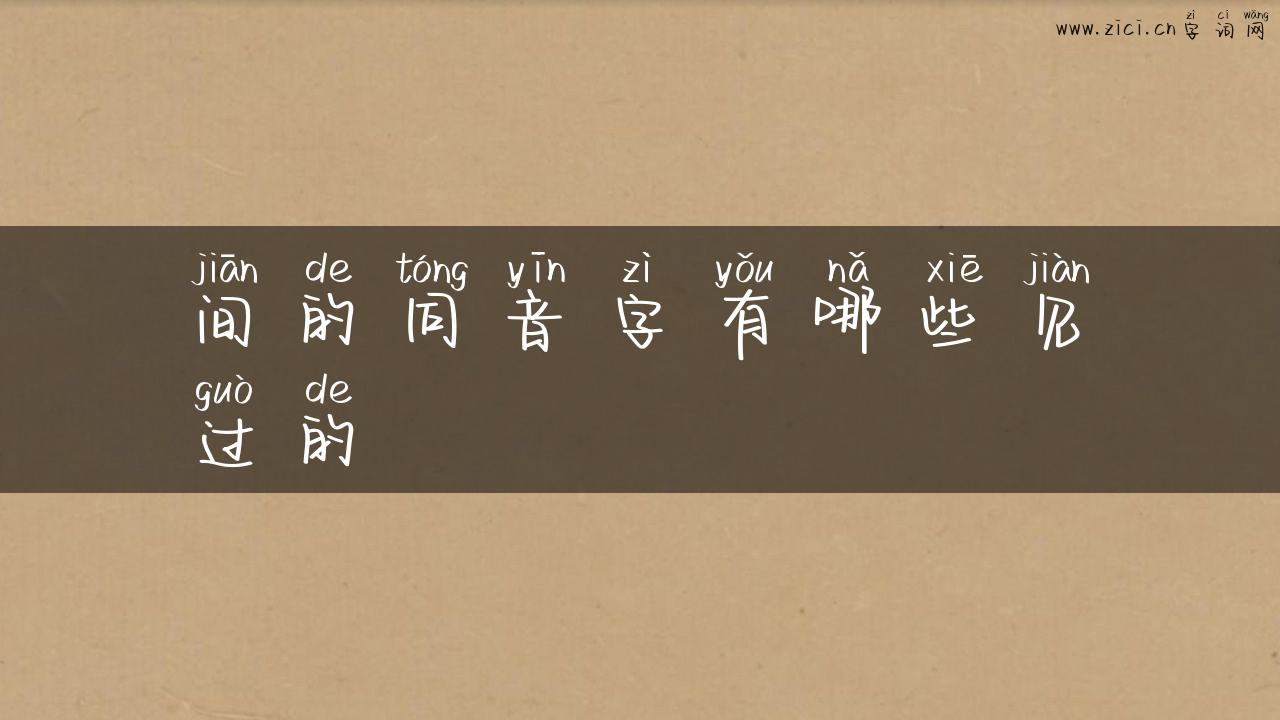 zì cí wǎng
www.zici.cn 字词网
jiān de tóng yīn zì yǒu nǎ xiē jiàn
间的同音字有哪些见
guò de
过的